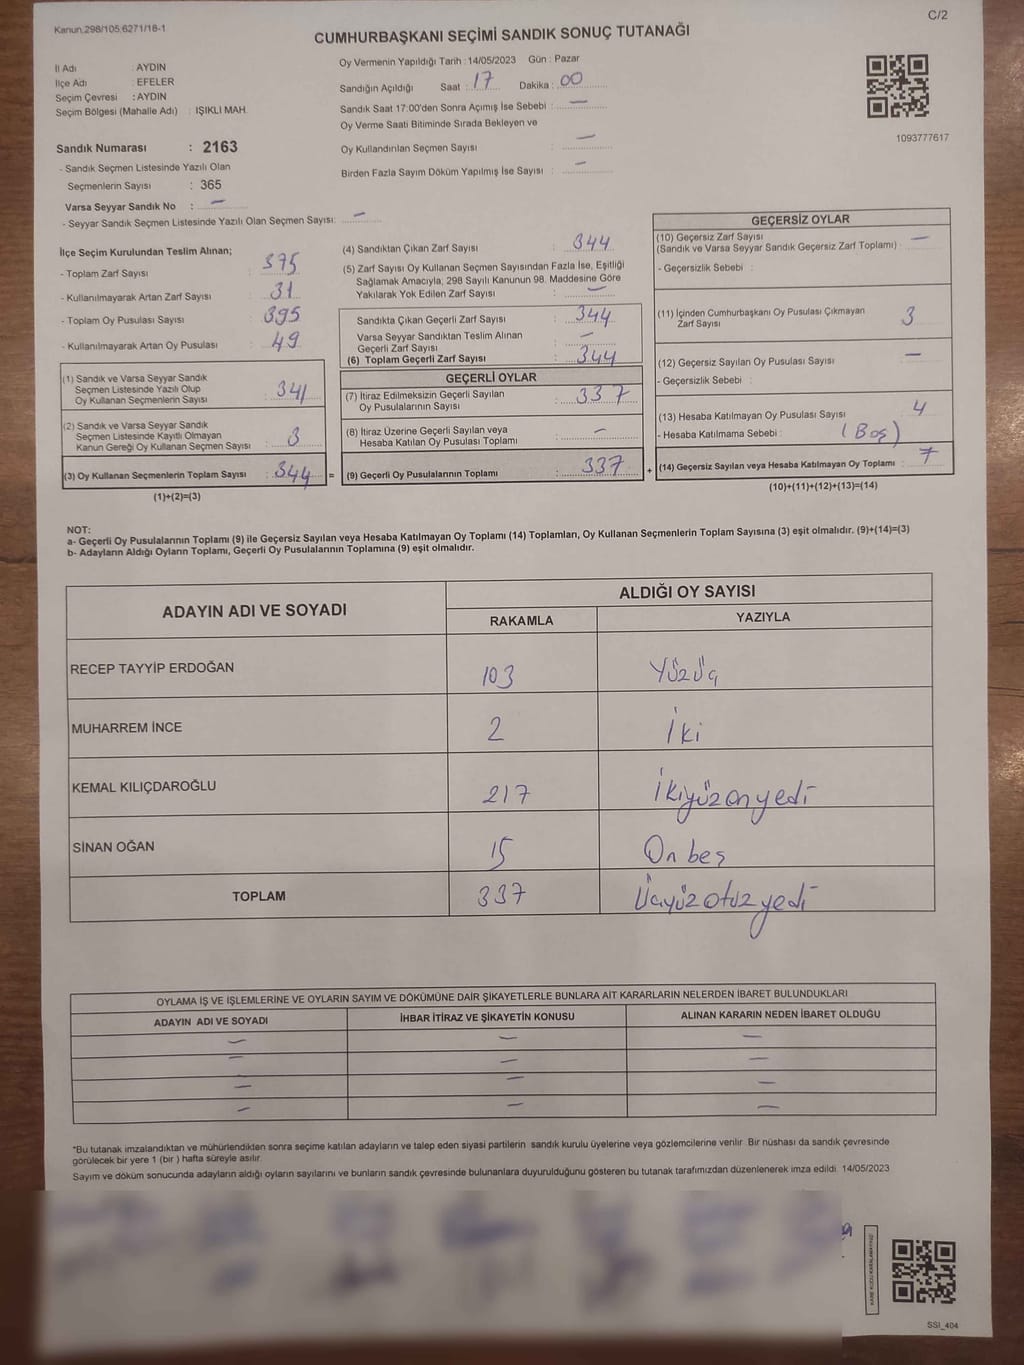 Kanun.298/105,6271/18-1
C/2
CUMHURBAŞKANI SEÇİMİ SANDIK SONUÇ TUTANAĞI
İl Adı : AYDIN
İlçe Adı : EFELER
Seçim Çevresi : AYDIN
Seçim Bölgesi (Mahalle Adı) : IŞIKLI MAH.
Oy Vermenin Yapıldığı Tarih : 14/05/2023 Gün : Pazar
Sandığın Açıldığı Saat : 17 Dakika : 00
Sandık Saat 17:00'den Sonra Açımış İse Sebebi : —
Oy Verme Saati Bitiminde Sırada Bekleyen ve
Oy Kullandırılan Seçmen Sayısı : —
Birden Fazla Sayım Döküm Yapılmış İse Sayısı : —
1093777617
Sandık Numarası : 2163
- Sandık Seçmen Listesinde Yazılı Olan
Seçmenlerin Sayısı : 365
Varsa Seyyar Sandık No : —
- Seyyar Sandık Seçmen Listesinde Yazılı Olan Seçmen Sayısı: —
İlçe Seçim Kurulundan Teslim Alınan;
- Toplam Zarf Sayısı : 375
- Kullanılmayarak Artan Zarf Sayısı : 31
- Toplam Oy Pusulası Sayısı : 395
- Kullanılmayarak Artan Oy Pusulası : 49
(1) Sandık ve Varsa Seyyar Sandık
Seçmen Listesinde Yazılı Olup
Oy Kullanan Seçmenlerin Sayısı : 341
(2) Sandık ve Varsa Seyyar Sandık
Seçmen Listesinde Kayıtlı Olmayan
Kanun Gereği Oy Kullanan Seçmen Sayısı : 3
(3) Oy Kullanan Seçmenlerin Toplam Sayısı : 344 =
(1)+(2)=(3)
(4) Sandıktan Çıkan Zarf Sayısı : 344
(5) Zarf Sayısı Oy Kullanan Seçmen Sayısından Fazla İse, Eşitliği
Sağlamak Amacıyla, 298 Sayılı Kanunun 98. Maddesine Göre
Yakılarak Yok Edilen Zarf Sayısı : —
Sandıkta Çıkan Geçerli Zarf Sayısı : 344
Varsa Seyyar Sandıktan Teslim Alınan
Geçerli Zarf Sayısı : —
(6) Toplam Geçerli Zarf Sayısı : 344
GEÇERLİ OYLAR
(7) İtiraz Edilmeksizin Geçerli Sayılan
Oy Pusulalarının Sayısı : 337
(8) İtiraz Üzerine Geçerli Sayılan veya
Hesaba Katılan Oy Pusulası Toplamı : —
(9) Geçerli Oy Pusulalarının Toplamı : 337 +
GEÇERSİZ OYLAR
(10) Geçersiz Zarf Sayısı
(Sandık ve Varsa Seyyar Sandık Geçersiz Zarf Toplamı) : —
- Geçersizlik Sebebi :
(11) İçinden Cumhurbaşkanı Oy Pusulası Çıkmayan
Zarf Sayısı : 3
(12) Geçersiz Sayılan Oy Pusulası Sayısı : —
- Geçersizlik Sebebi :
(13) Hesaba Katılmayan Oy Pusulası Sayısı : 4
- Hesaba Katılmama Sebebi : (Boş)
(14) Geçersiz Sayılan veya Hesaba Katılmayan Oy Toplamı : 7
(10)+(11)+(12)+(13)=(14)
NOT:
a- Geçerli Oy Pusulalarının Toplamı (9) ile Geçersiz Sayılan veya Hesaba Katılmayan Oy Toplamı (14) Toplamları, Oy Kullanan Seçmenlerin Toplam Sayısına (3) eşit olmalıdır. (9)+(14)=(3)
b- Adayların Aldığı Oyların Toplamı, Geçerli Oy Pusulalarının Toplamına (9) eşit olmalıdır.
ADAYIN ADI VE SOYADI
ALDIĞI OY SAYISI
RAKAMLA YAZIYLA
RECEP TAYYİP ERDOĞAN 103 Yüzüç
MUHARREM İNCE 2 İki
KEMAL KILIÇDAROĞLU 217 İkiyüzonyedi
SİNAN OĞAN 15 Onbeş
TOPLAM 337 Üçyüzotuzyedi
OYLAMA İŞ VE İŞLEMLERİNE VE OYLARIN SAYIM VE DÖKÜMÜNE DAİR ŞİKAYETLERLE BUNLARA AİT KARARLARIN NELERDEN İBARET BULUNDUKLARI
ADAYIN ADI VE SOYADI İHBAR İTİRAZ VE ŞİKAYETİN KONUSU ALINAN KARARIN NEDEN İBARET OLDUĞU
— — —
— — —
— — —
— — —
*Bu tutanak imzalandıktan ve mühürlendikten sonra seçime katılan adayların ve talep eden siyasi partilerin sandık kurulu üyelerine veya gözlemcilerine verilir. Bir nüshası da sandık çevresinde
görülecek bir yere 1 (bir ) hafta süreyle asılır.
Sayım ve döküm sonucunda adayların aldığı oyların sayılarını ve bunların sandık çevresinde bulunanlara duyurulduğunu gösteren bu tutanak tarafımızdan düzenlenerek imza edildi. 14/05/2023
KARE KODU KARALAMAYINIZ
SSI_404